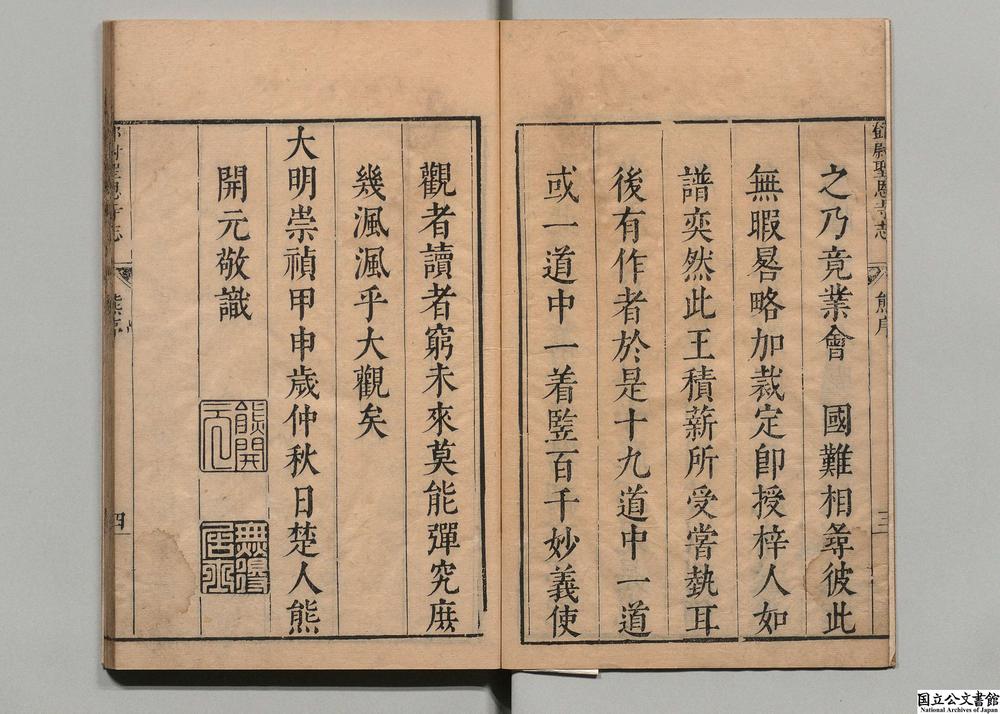 鄧尉聖恩寺志
熊序
三
之乃竟業會　國難相尋彼此
無暇畧略加裁定卽授梓人如
譜奕然此王積薪所受嘗執耳
後有作者於是十九道中一道
或一道中一着竪百千妙義使
觀者讀者窮未來莫能彈究庶
幾渢渢乎大觀矣
大明崇禎甲申歲仲秋日楚人熊
開元敬識
熊開元
聖恩寺志
熊序
四
国立公文書館
National Archives of Japan